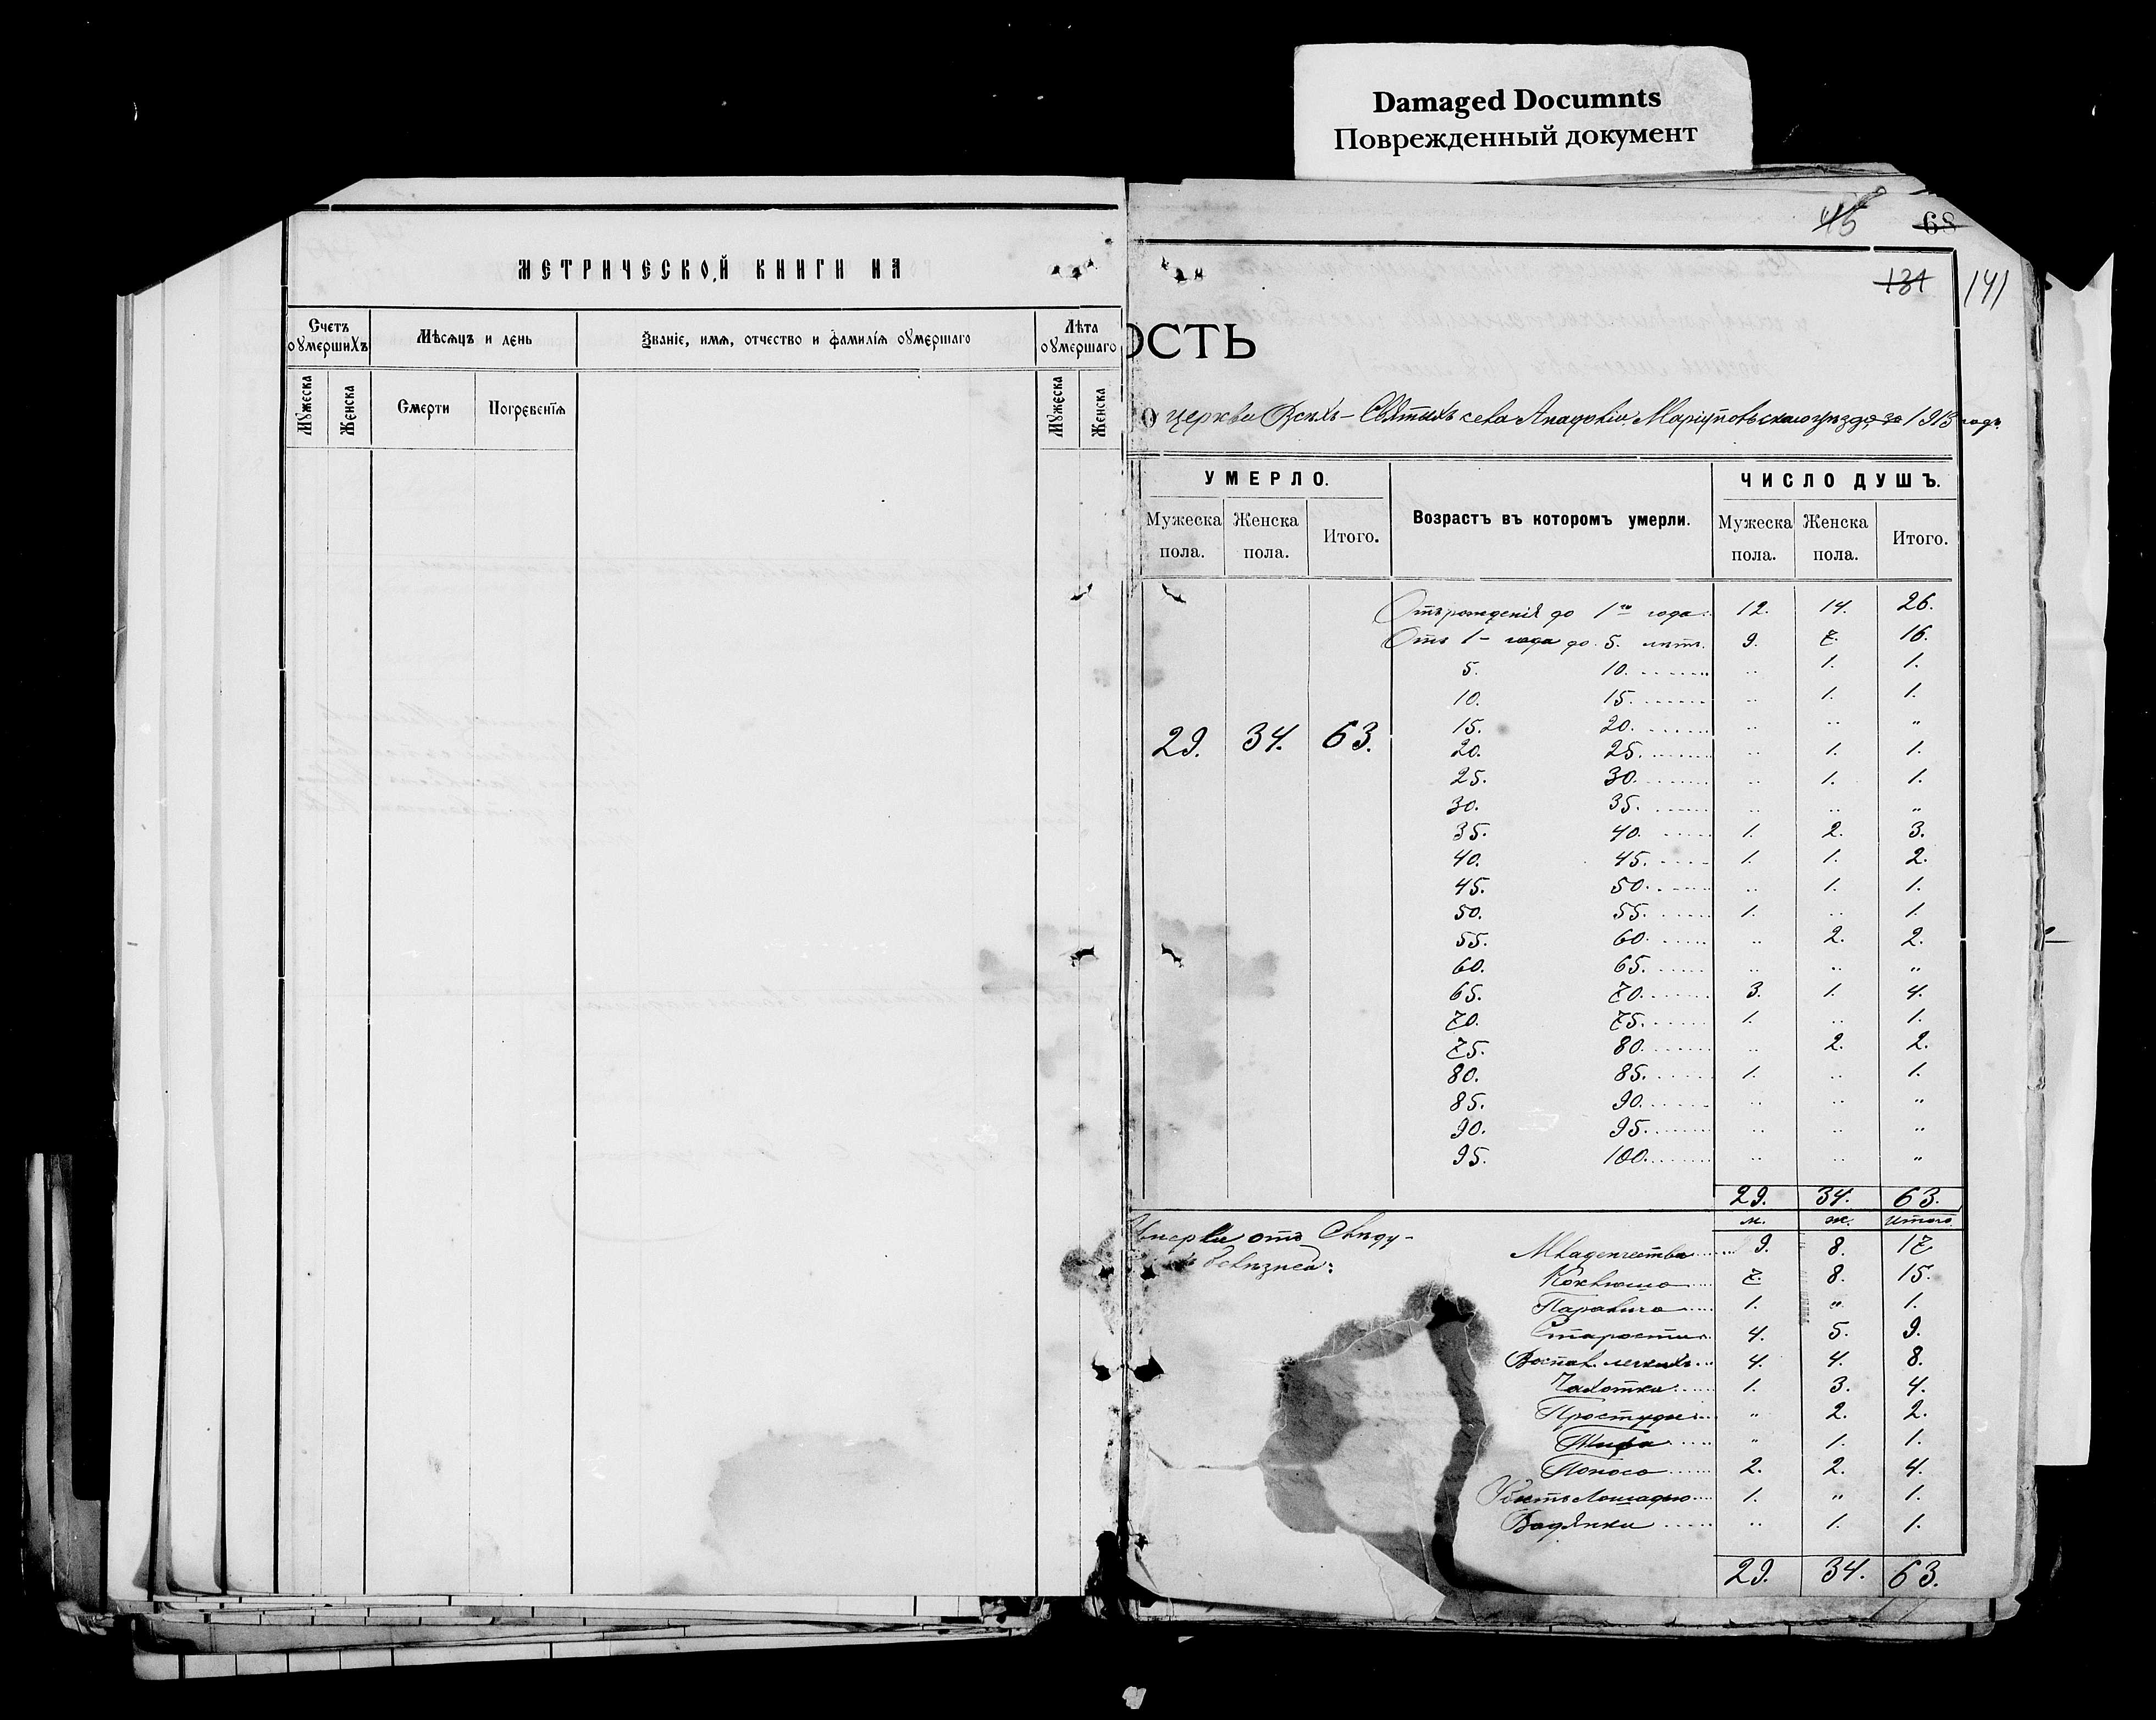 Damaged Documnts
Поврежденный документ
45
68
131
141
МЕТРИЧЕСКОЙ КНИГИ НА
Счетъ оумершихъ
Мѣсяцъ и день
Званіе, имя, отчество и фамилія оумершаго
Лѣта оумершаго
Мужеска
Женска
Смерти
Погребенія
Мужеска
Женска
ОСТЬ
церкви Всѣхъ-Святыхъ села Мариупольскаго уѣзда за 1913 годъ.
УМЕРЛО.
Возрастъ въ которомъ умерли.
ЧИСЛО ДУШЪ.
Мужеска пола.
Женска пола.
Итого.
Мужеска пола.
Женска пола.
Итого.
29. 34. 63.
Отъ рожденія до 1го года 12. 14. 26.
Отъ 1- года до 5. лѣтъ. 9. 7. 16.
5. 10. .. 1. 1.
10. 15. .. 1. 1.
15. 20. .. .. "
20. 25. .. 1. 1.
25. 30. .. 1. 1.
30. 35. .. .. "
35. 40. 1. 2. 3.
40. 45. 1. 1. 2.
45. 50. .. 1. 1.
50. 55. 1. .. 1.
55. 60. .. 2. 2.
60. 65. .. .. "
65. 70. 3. 1. 4.
70. 75. 1. .. 1.
75. 80. .. 2. 2.
80. 85. 1. .. 1.
85. 90. .. .. "
90. 95. .. .. "
95. 100. .. .. "
29. 34. 63.
м. ж. итого.
Умерли отъ слѣду-
болѣзней:
Младенчества 9. 8. 17
Коклюша 7. 8. 15.
Паралича 1. " 1.
Старости 4. 5. 9.
Воспал. легкихъ 4. 4. 8.
Чахотки 1. 3. 4.
Простуды " 2. 2.
Тифа " 1. 1.
Поноса 2. 2. 4.
Убитъ лошадью 1. " 1.
Водянки .. 1. 1.
29. 34. 63.